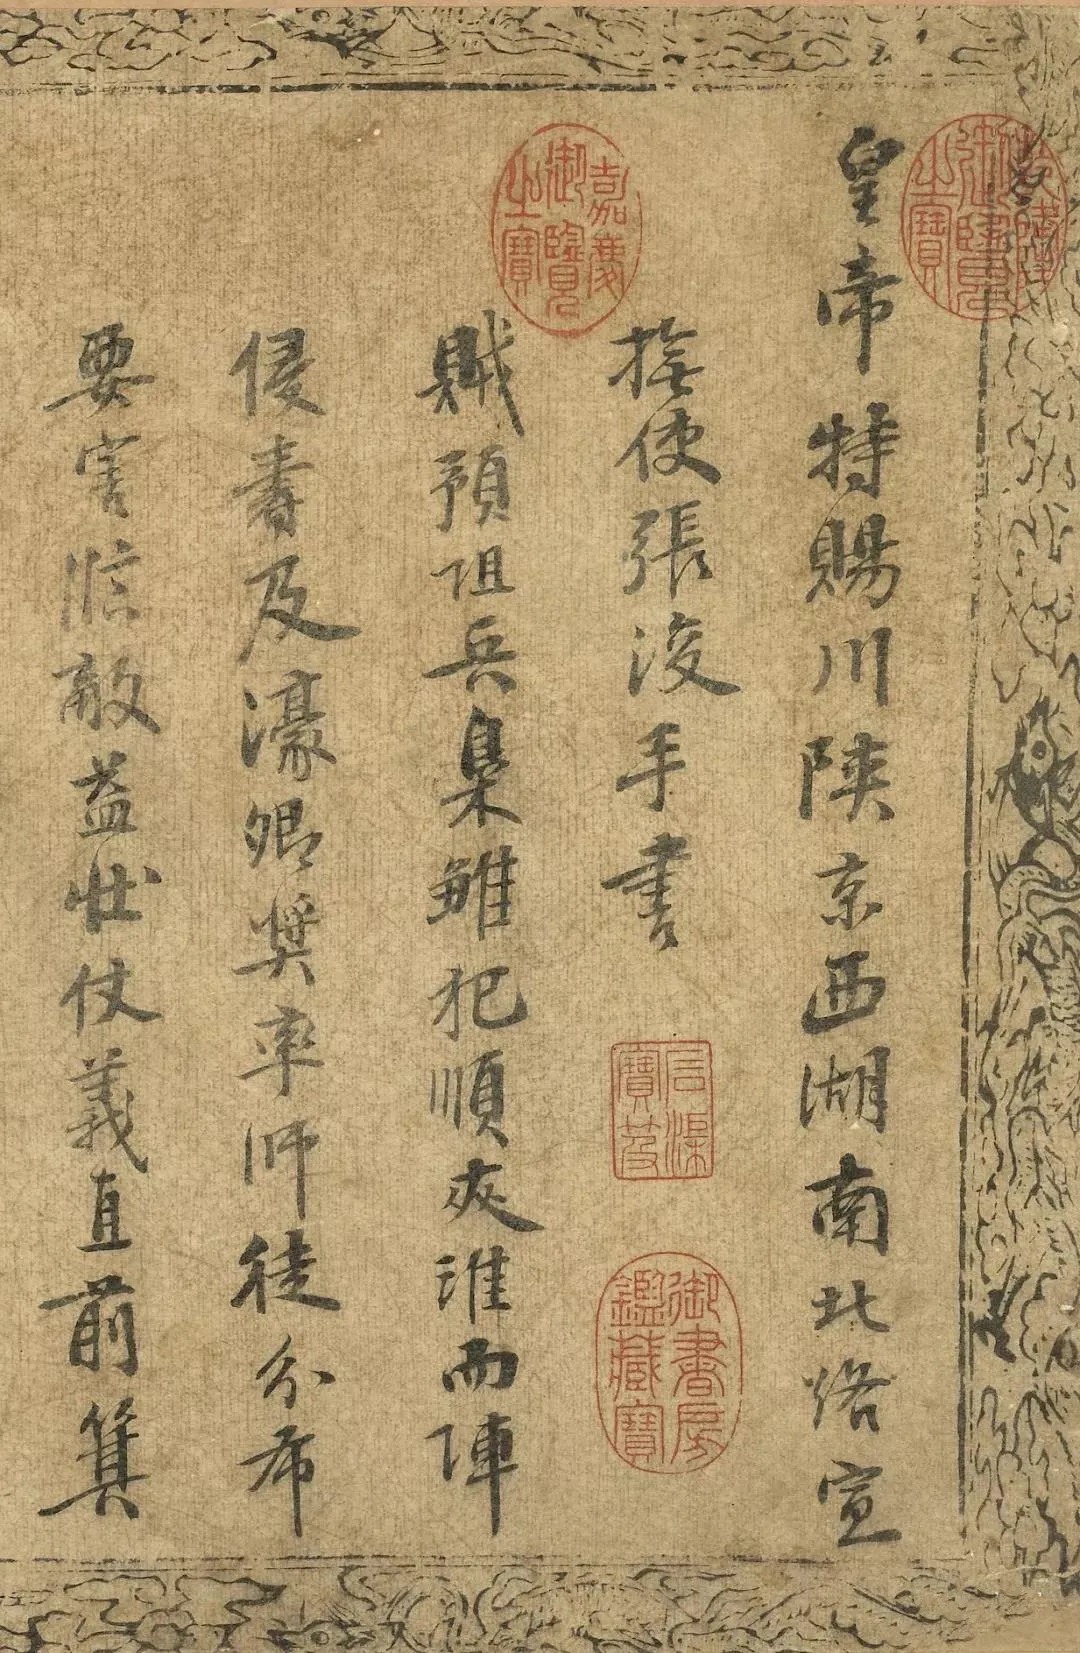 皇帝特賜川陝京西湖南北路宣
撫使張浚手書
賊預阻兵梟雛犯順夾淮而陣
侵壽及濠卿獎率師徒分布
要害臨敵益壯仗義直前箕
嘉慶御覽之寶
石渠寶笈
御書房鑑藏寶
乾隆御覽之寶